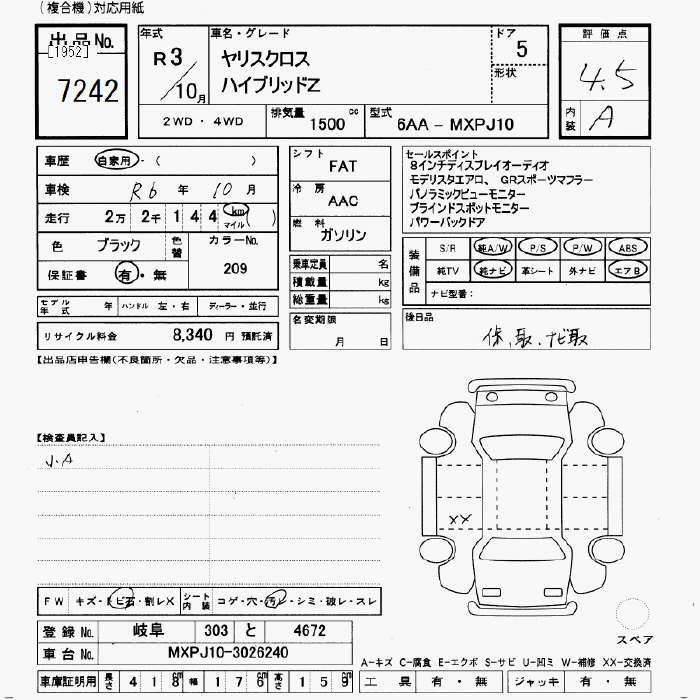 (複合機)対応用紙
出品No.
[1952]
7242
年式
R 3/10月
車名・グレード
ヤリスクロス
ハイブリッドZ
ドア
5
形状
2WD・4WD
排気量 1500 cc
型式 6AA－MXPJ10
評価点
4.5
内装 A
車歴 自家用・( )
車検 R6年10月
走行 2万2千144(km マイル)
色 ブラック 色替 カラーNo.
保証書 有・無 209
モデル年式 年 ハンドル 左・右 ディーラー・並行
リサイクル料金 8,340 円 預託済
シフト FAT
冷房 AAC
燃料 ガソリン
乗車定員 名
積載量 kg
総重量 kg
名変期限
月 日
セールスポイント
8インチディスプレイオーディオ
モデリスタエアロ、GRスポーツマフラー
パノラミックビューモニター
ブラインドスポットモニター
パワーバックドア
装備品
S/R 純A/W P/S P/W ABS
純TV 純ナビ 革シート 外ナビ エアB
ナビ型番:
後日品
保,取,ナビ取
【出品店申告欄(不良箇所・欠品・注意事項等)】
【検査員記入】
J.A
XX
FW キズ・トビ石・割レX シート内装 コゲ・穴・汚レ・シミ・破レ・スレ
登録No. 岐阜 303 と 4672
車台No. MXPJ10-3026240
車庫証明用 長さ 418cm 幅 176cm 高さ 159cm
スペア
A-キズ C-腐食 E-エクボ S-サビ U-凹ミ W-補修 XX-交換済
工具 有・無 ジャッキ 有・無